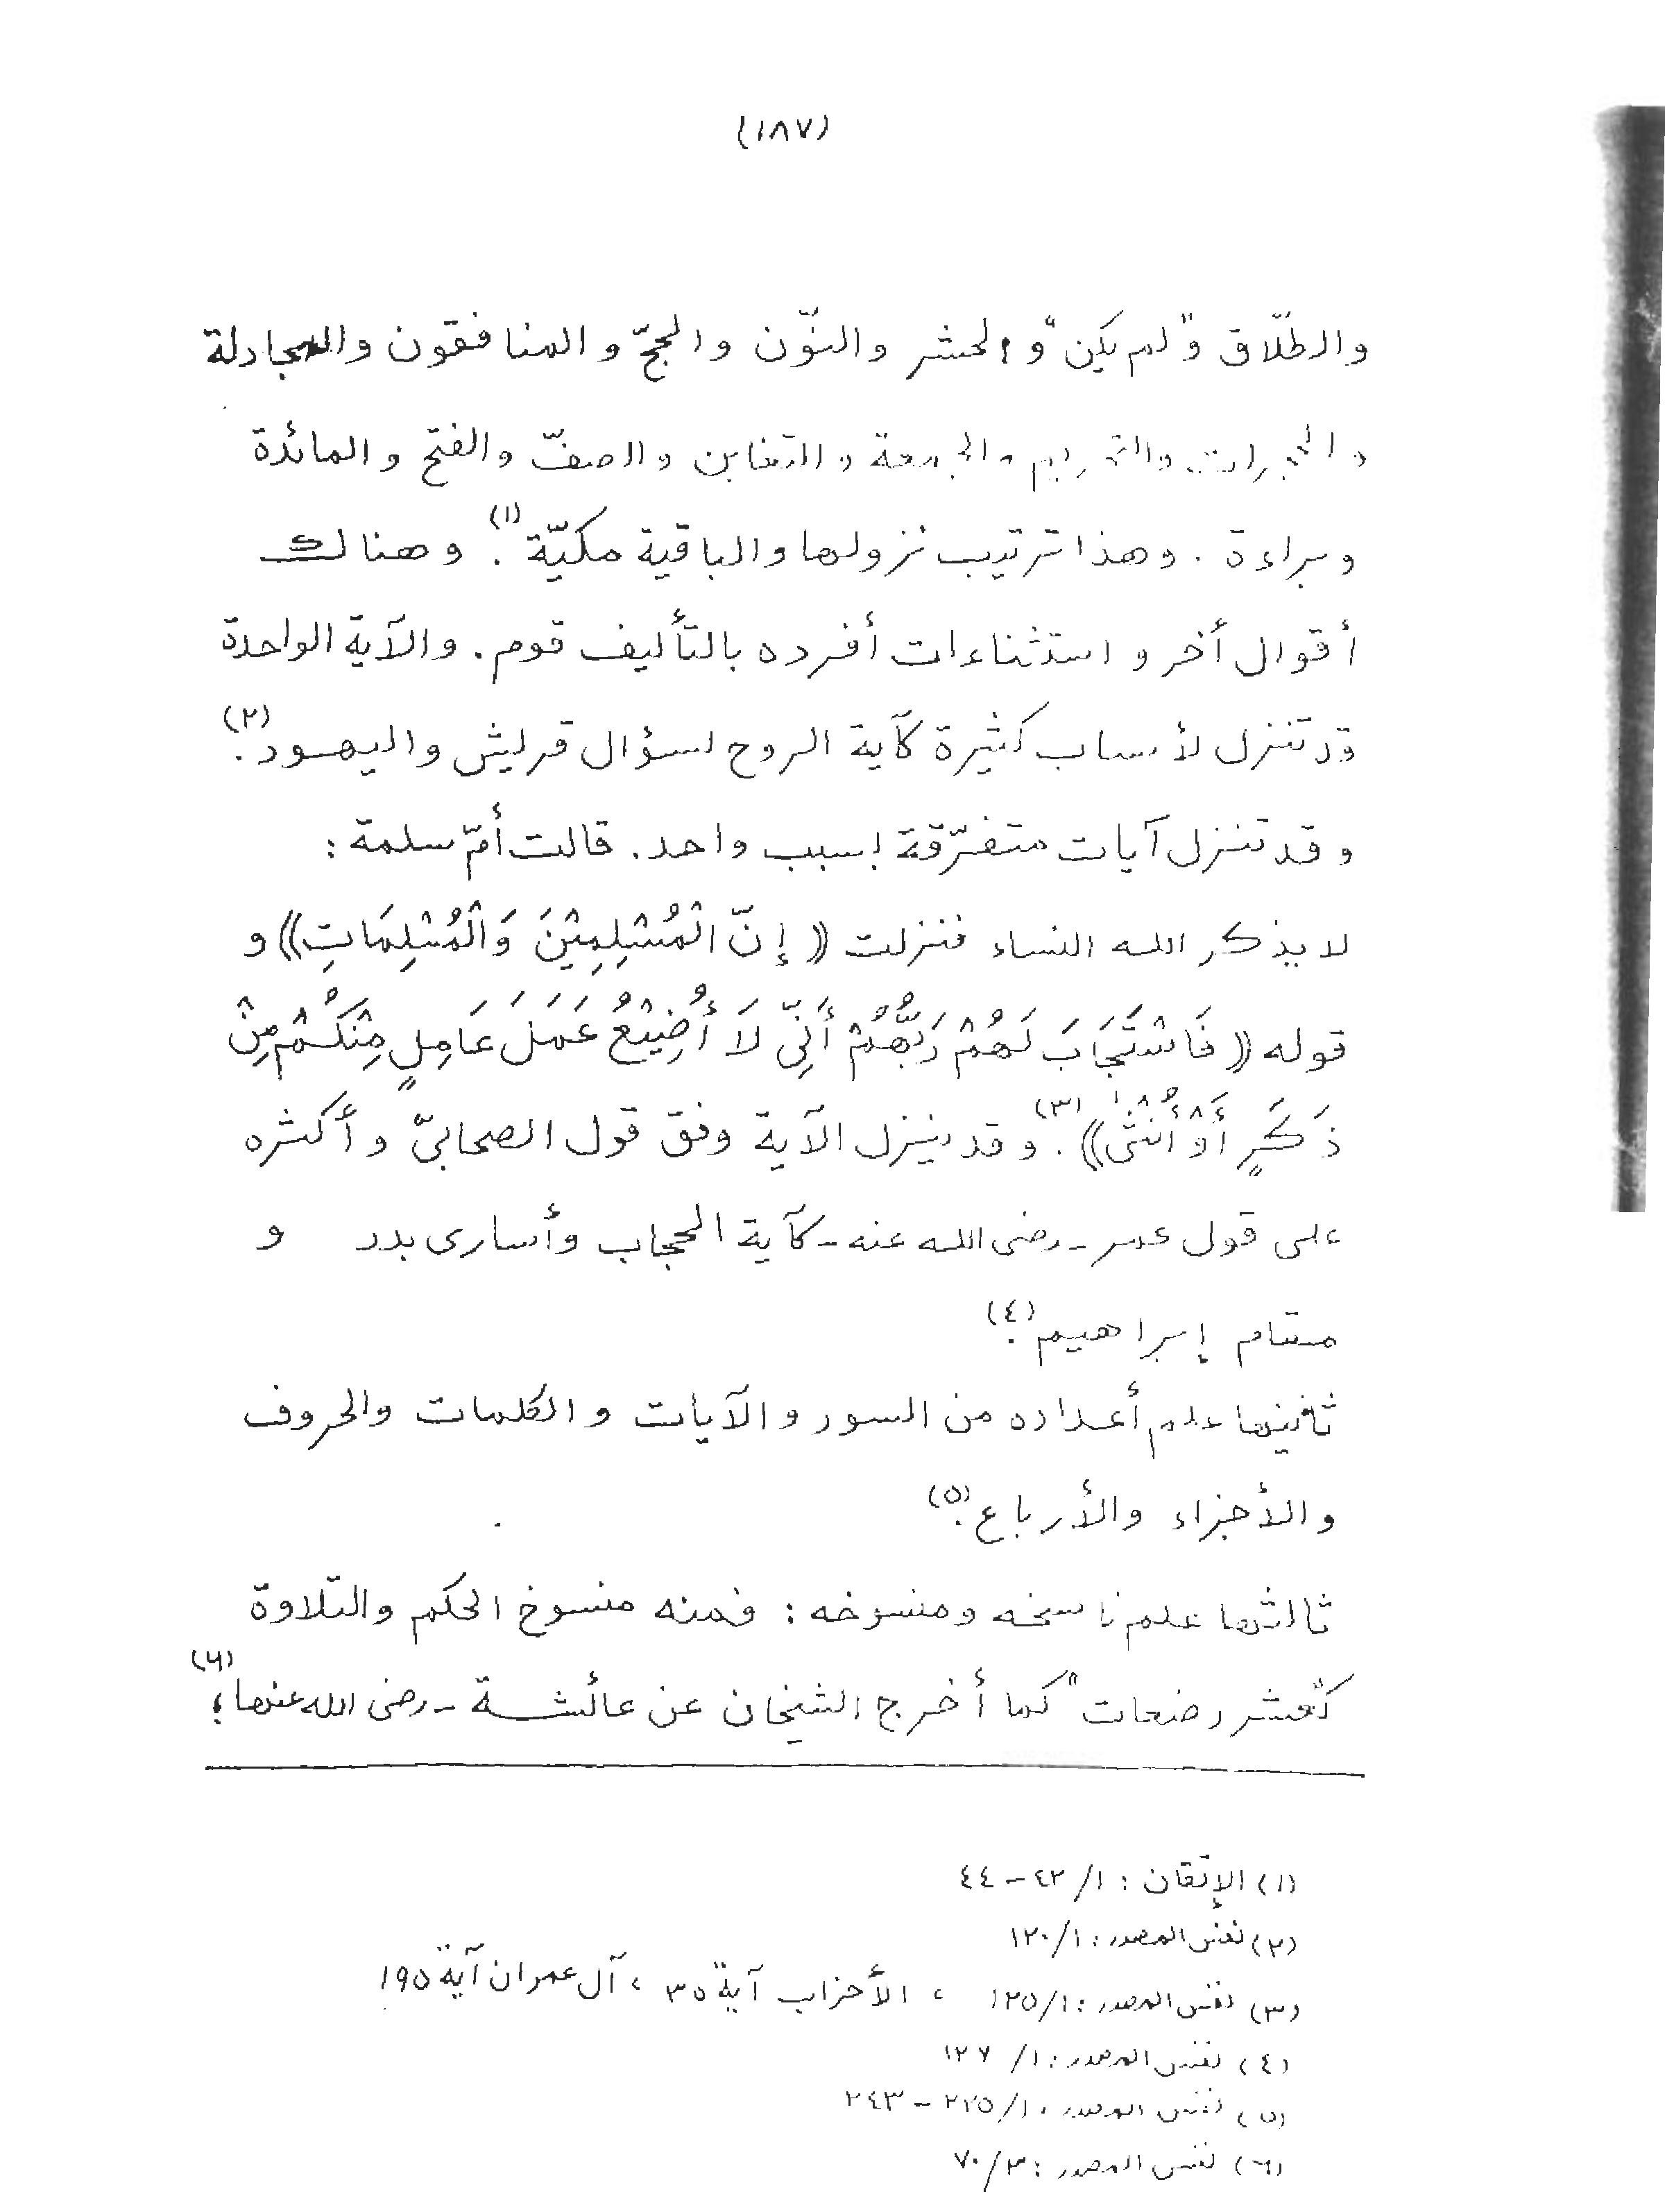 (١٨٧)
والطلّاق و"لم يكن" والحشر والنوّن والحجّ و المنافقون والمجادلة
والحجرات والتحريم والجمعة والتغابن والصفّ والفتح والمائدة
وبراءة . وهذا ترتيب نزولها والباقية مكيّة (١). وهناك
أقوال أخر و استثناءات أفرده بالتأليف قوم. والآية الواحدة
قد تنزل لأسباب كثيرة كآية الروح لسؤال قريش واليهود (٢).
وقد تنزل آيات متفرّقة بسبب واحد. قالت أمّ سلمة :
لا يذكر الله النساء فنزلت ((إنّ الْمُسْلِمِيْنَ وَالْمُسْلِمَاتِ)) و
قوله ((فَاسْتَجَابَ لَهُمْ رَبُّهُمْ أَنِّي لَا أُضِيْعُ عَمَلَ عَامِلٍ مِنْكُمْ مِنْ
ذَكَرٍ أَوْ أُنْثٰى)) (٣). وقد ينزل الآية وفق قول الصحابيّ وأكثره
على قول عمر - رضى الله عنه - كآية الحجاب وأسارى بدر و
مقام إبراهيم (٤).
ثانيها علم أعداده من السور و الآيات و الكلمات والحروف
والأجزاء والأرباع (٥).
ثالثها علم ناسخه ومنسوخه : فمنه منسوخ الحكم والتلاوة
ك"عشر رضعات" كما أخرج الشيخان عن عائشة - رضى الله عنها (٦)؛
(١) الإتقان : ١/ ٤٢ - ٤٤
(٢) نفس المصدر : ١/ ١٢٠
(٣) نفس المصدر : ١/ ١٢٥ ، الأحزاب آية ٣٥ ، آل عمران آية ١٩٥
(٤) نفس المصدر : ١/ ١٢٧
(٥) نفس المصدر : ١/ ٢٢٥ - ٢٤٣
(٦) نفس المصدر : ٣/ ٧٠